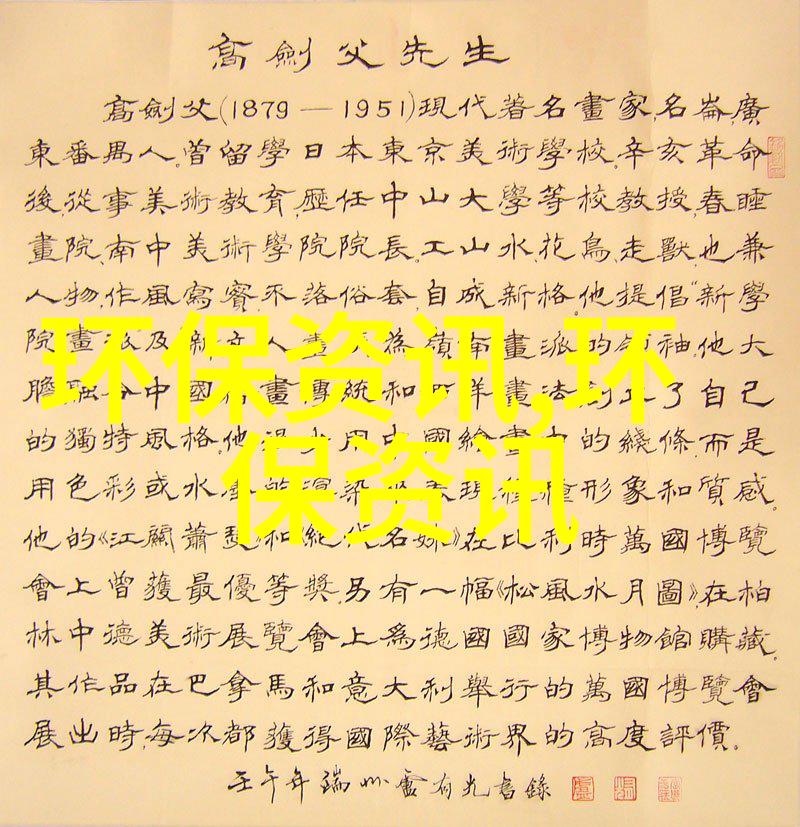 高劍父先生
高劍父(1879—1951)現代著名畫家,名崙,廣
東番禺人。曾留學日本東京美術學校。辛亥革命
後,從事美術教育,歷任中山大學等校教授,春睡
畫院、南中美術學院院長。工山水、花鳥、走獸,也兼
人物,作風寫實,不落俗套,自成新格。他提倡“新學
院畫派及新文人畫為嶺南畫派的領袖。他大
膽融合中國畫傳統和西洋畫法,創立了自己
的獨特風格。他用中國繪畫中的綫條,而是
用色彩或水的渲染來表現種種形象和質感。
他的《江關蕭瑟》和《絕代名姝》在比利時萬國博覽
會上曾獲最優等獎。另有一幅《松風水月圖》,在柏
林中德美術展覽會上爲德國國家博物館購藏。
其作品在巴拿馬和意大利舉行的萬國博覽會
展出時,每次都獲得國際藝術界的高度評價。
壬午年端州盧有光書錄
环保资讯,环
保资讯